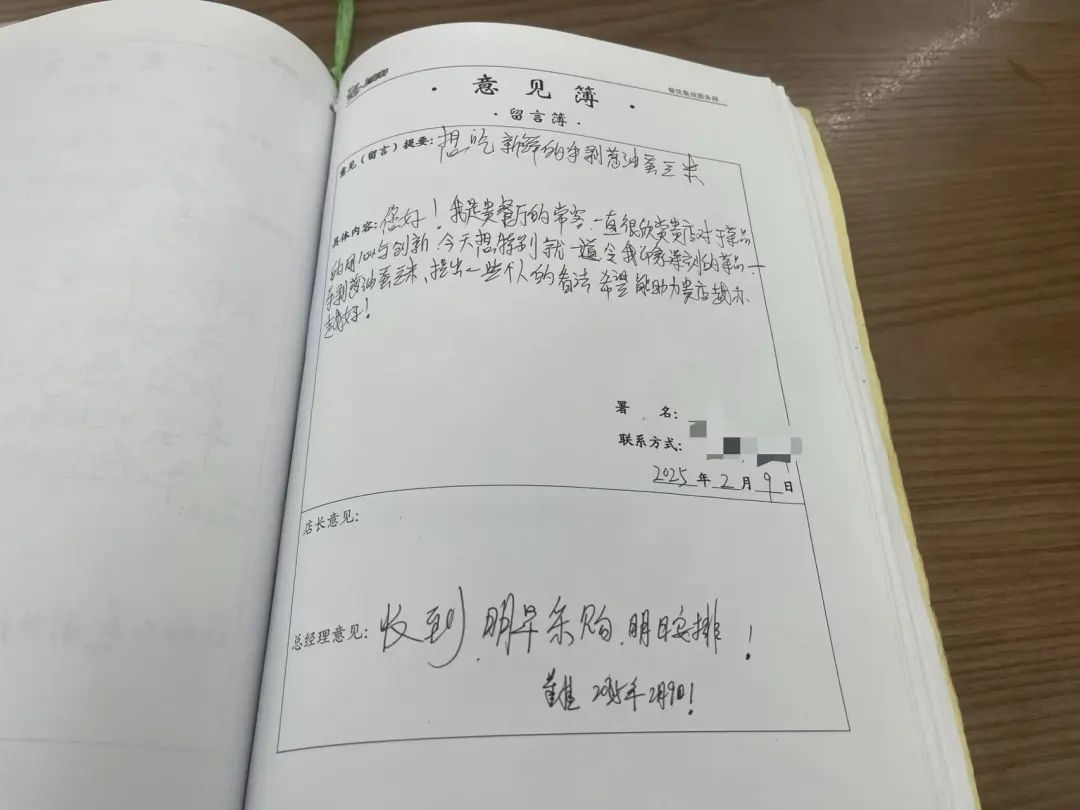 ·意见簿·
餐饮集成服务商
·留言簿·
意见（留言）提要：想吃新鲜的手剥葱油蚕豆米
具体内容：您好！我是贵餐厅的常客.一直很欣赏贵店对于菜品
的用心与创新.今天想特别就一道令我印象深刻的菜品—
手剥葱油蚕豆米、提出一些个人的看法 希望能助力贵店越办
越好！
署 名：
联系方式：
2025年2月9日
店长意见：
总经理意见：收到.明早采购.明日安排！
2025年2月9日！